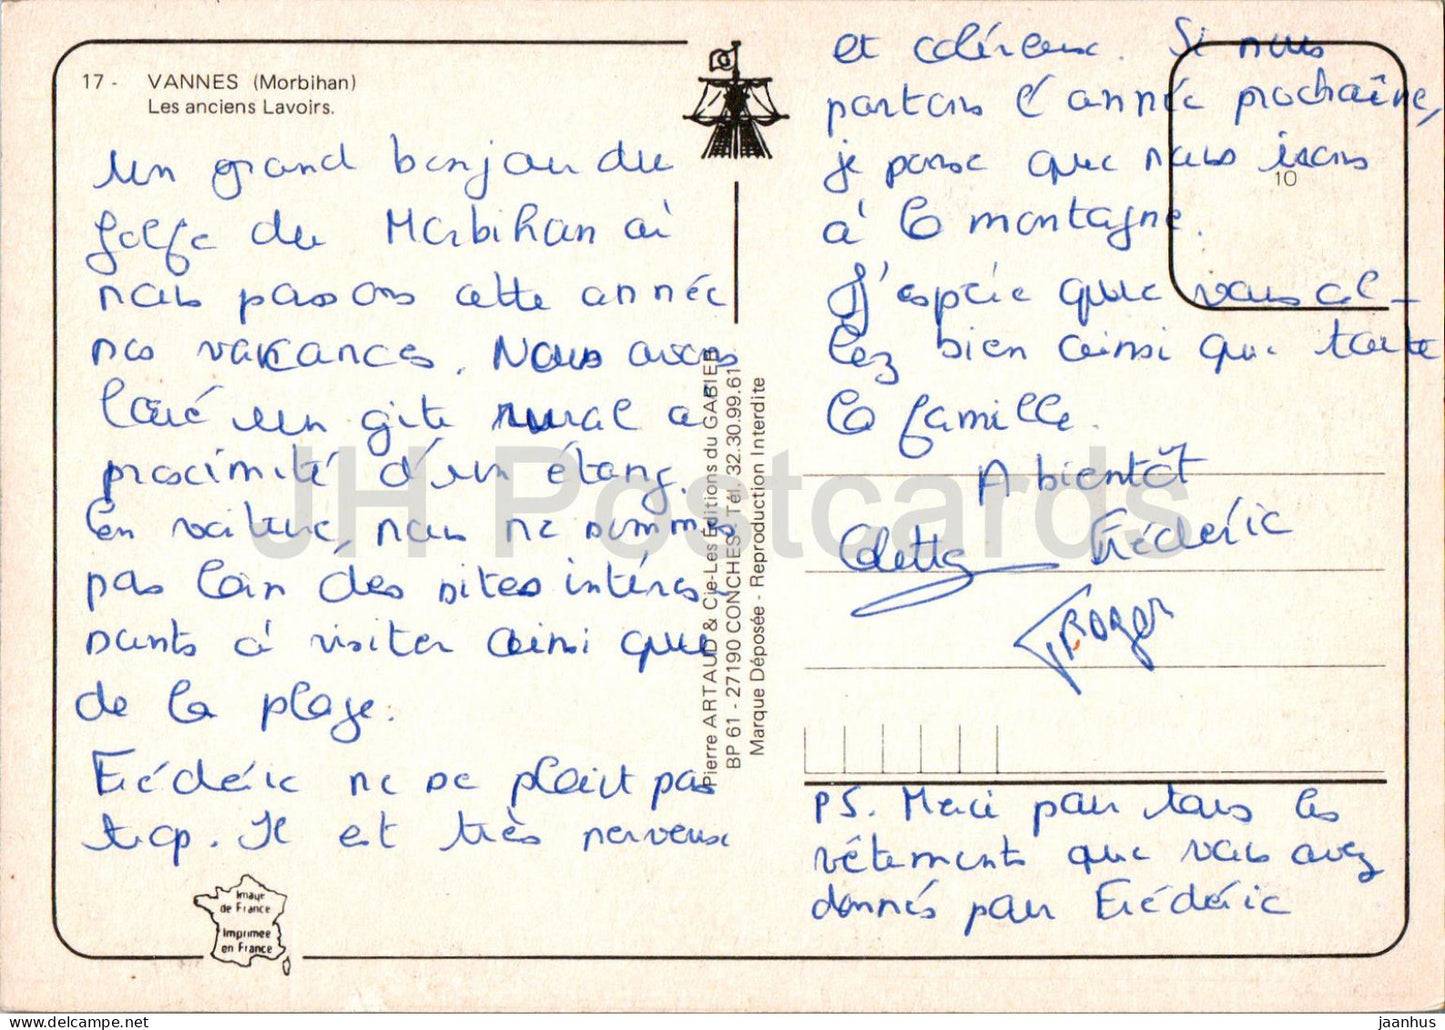 17 - VANNES (Morbihan)
Les anciens Lavoirs.
Un grand bonjour du
golfe du Morbihan où
nous passons cette année
nos vacances. Nous avons
loué un gite rural à
proximité d'un étang.
En voiture, nous ne sommes
pas loin des sites intéres-
sants à visiter ainsi que
de la plage.
Frédéric ne se plait pas
trop. Il est très nerveux
et coléreux. Si nous
partons l'année prochaîne,
je pense que nous irons
à la montagne.
J'espère que vous al-
lez bien ainsi que toute
la famille.
A bientôt
Colette Frédéric
Roger
PS. Merci pour tous les
vêtements que vous avez
donnés pour Frédéric
10
Pierre ARTAUD & Cie-Les Éditions du GABIER
BP 61 - 27190 CONCHES - Tél. 32.30.99.61
Marque Déposée - Reproduction Interdite
Image
de France
Imprimée
en France
JH Postcards
www.delcampe.net
jaanhus